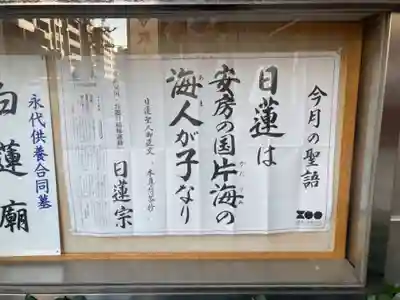 今月の聖語
日蓮は
安房の国片海の
かた うみ
海人が子なり
あま
日蓮聖人御遺文
日蓮宗
白蓮廟
永代供養合同墓